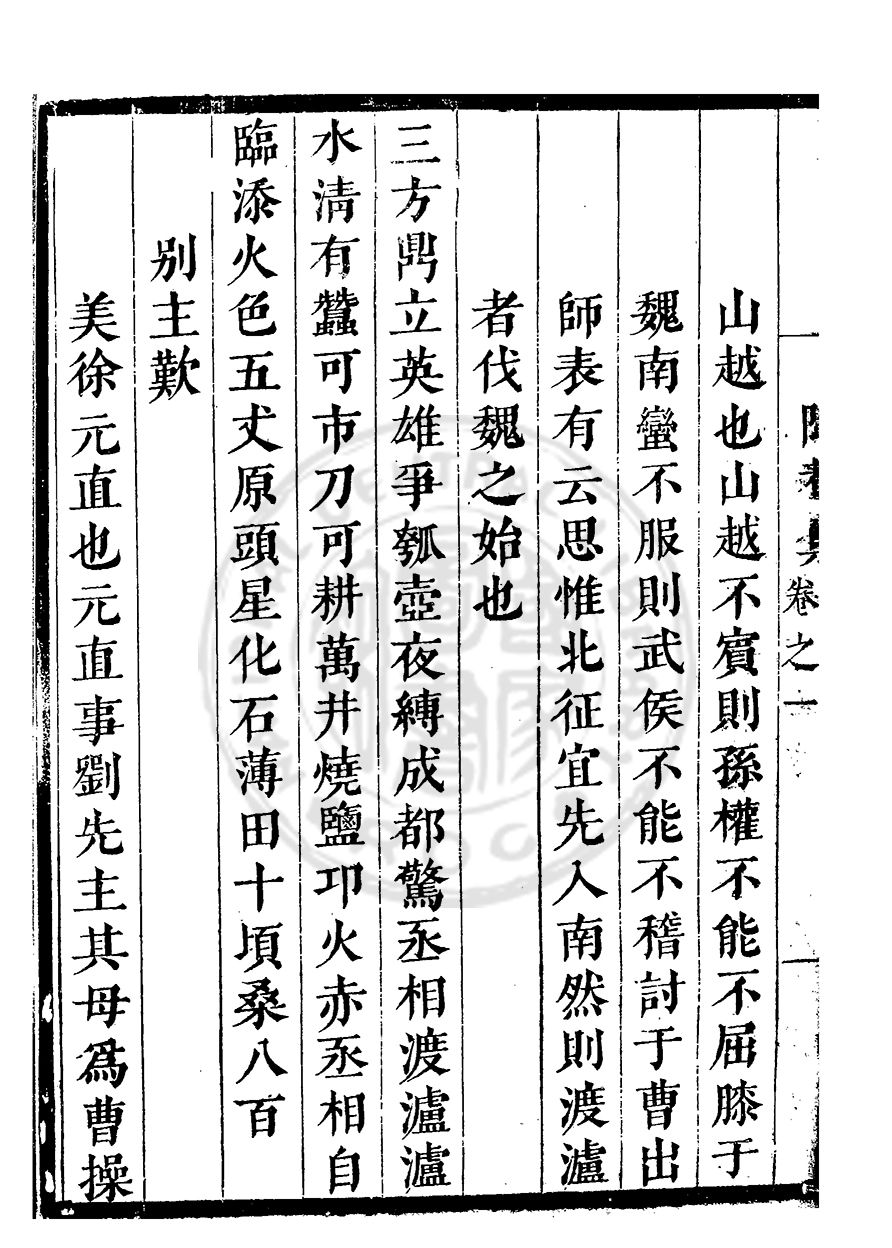 山越也山越不賓則孫權不能不屈膝于
魏南蠻不服則武侯不能不稽討于曹出
師表有云思惟北征宜先入南然則渡瀘
者伐魏之始也
三方鼎立英雄爭瓠壺夜縛成都驚丞相渡瀘瀘
水清有蠶可市刀可耕萬井燒鹽卭火赤丞相自
臨添火色五丈原頭星化石薄田十頃桑八百
别主歎
美徐元直也元直事劉先主其母爲曹操
卷之一